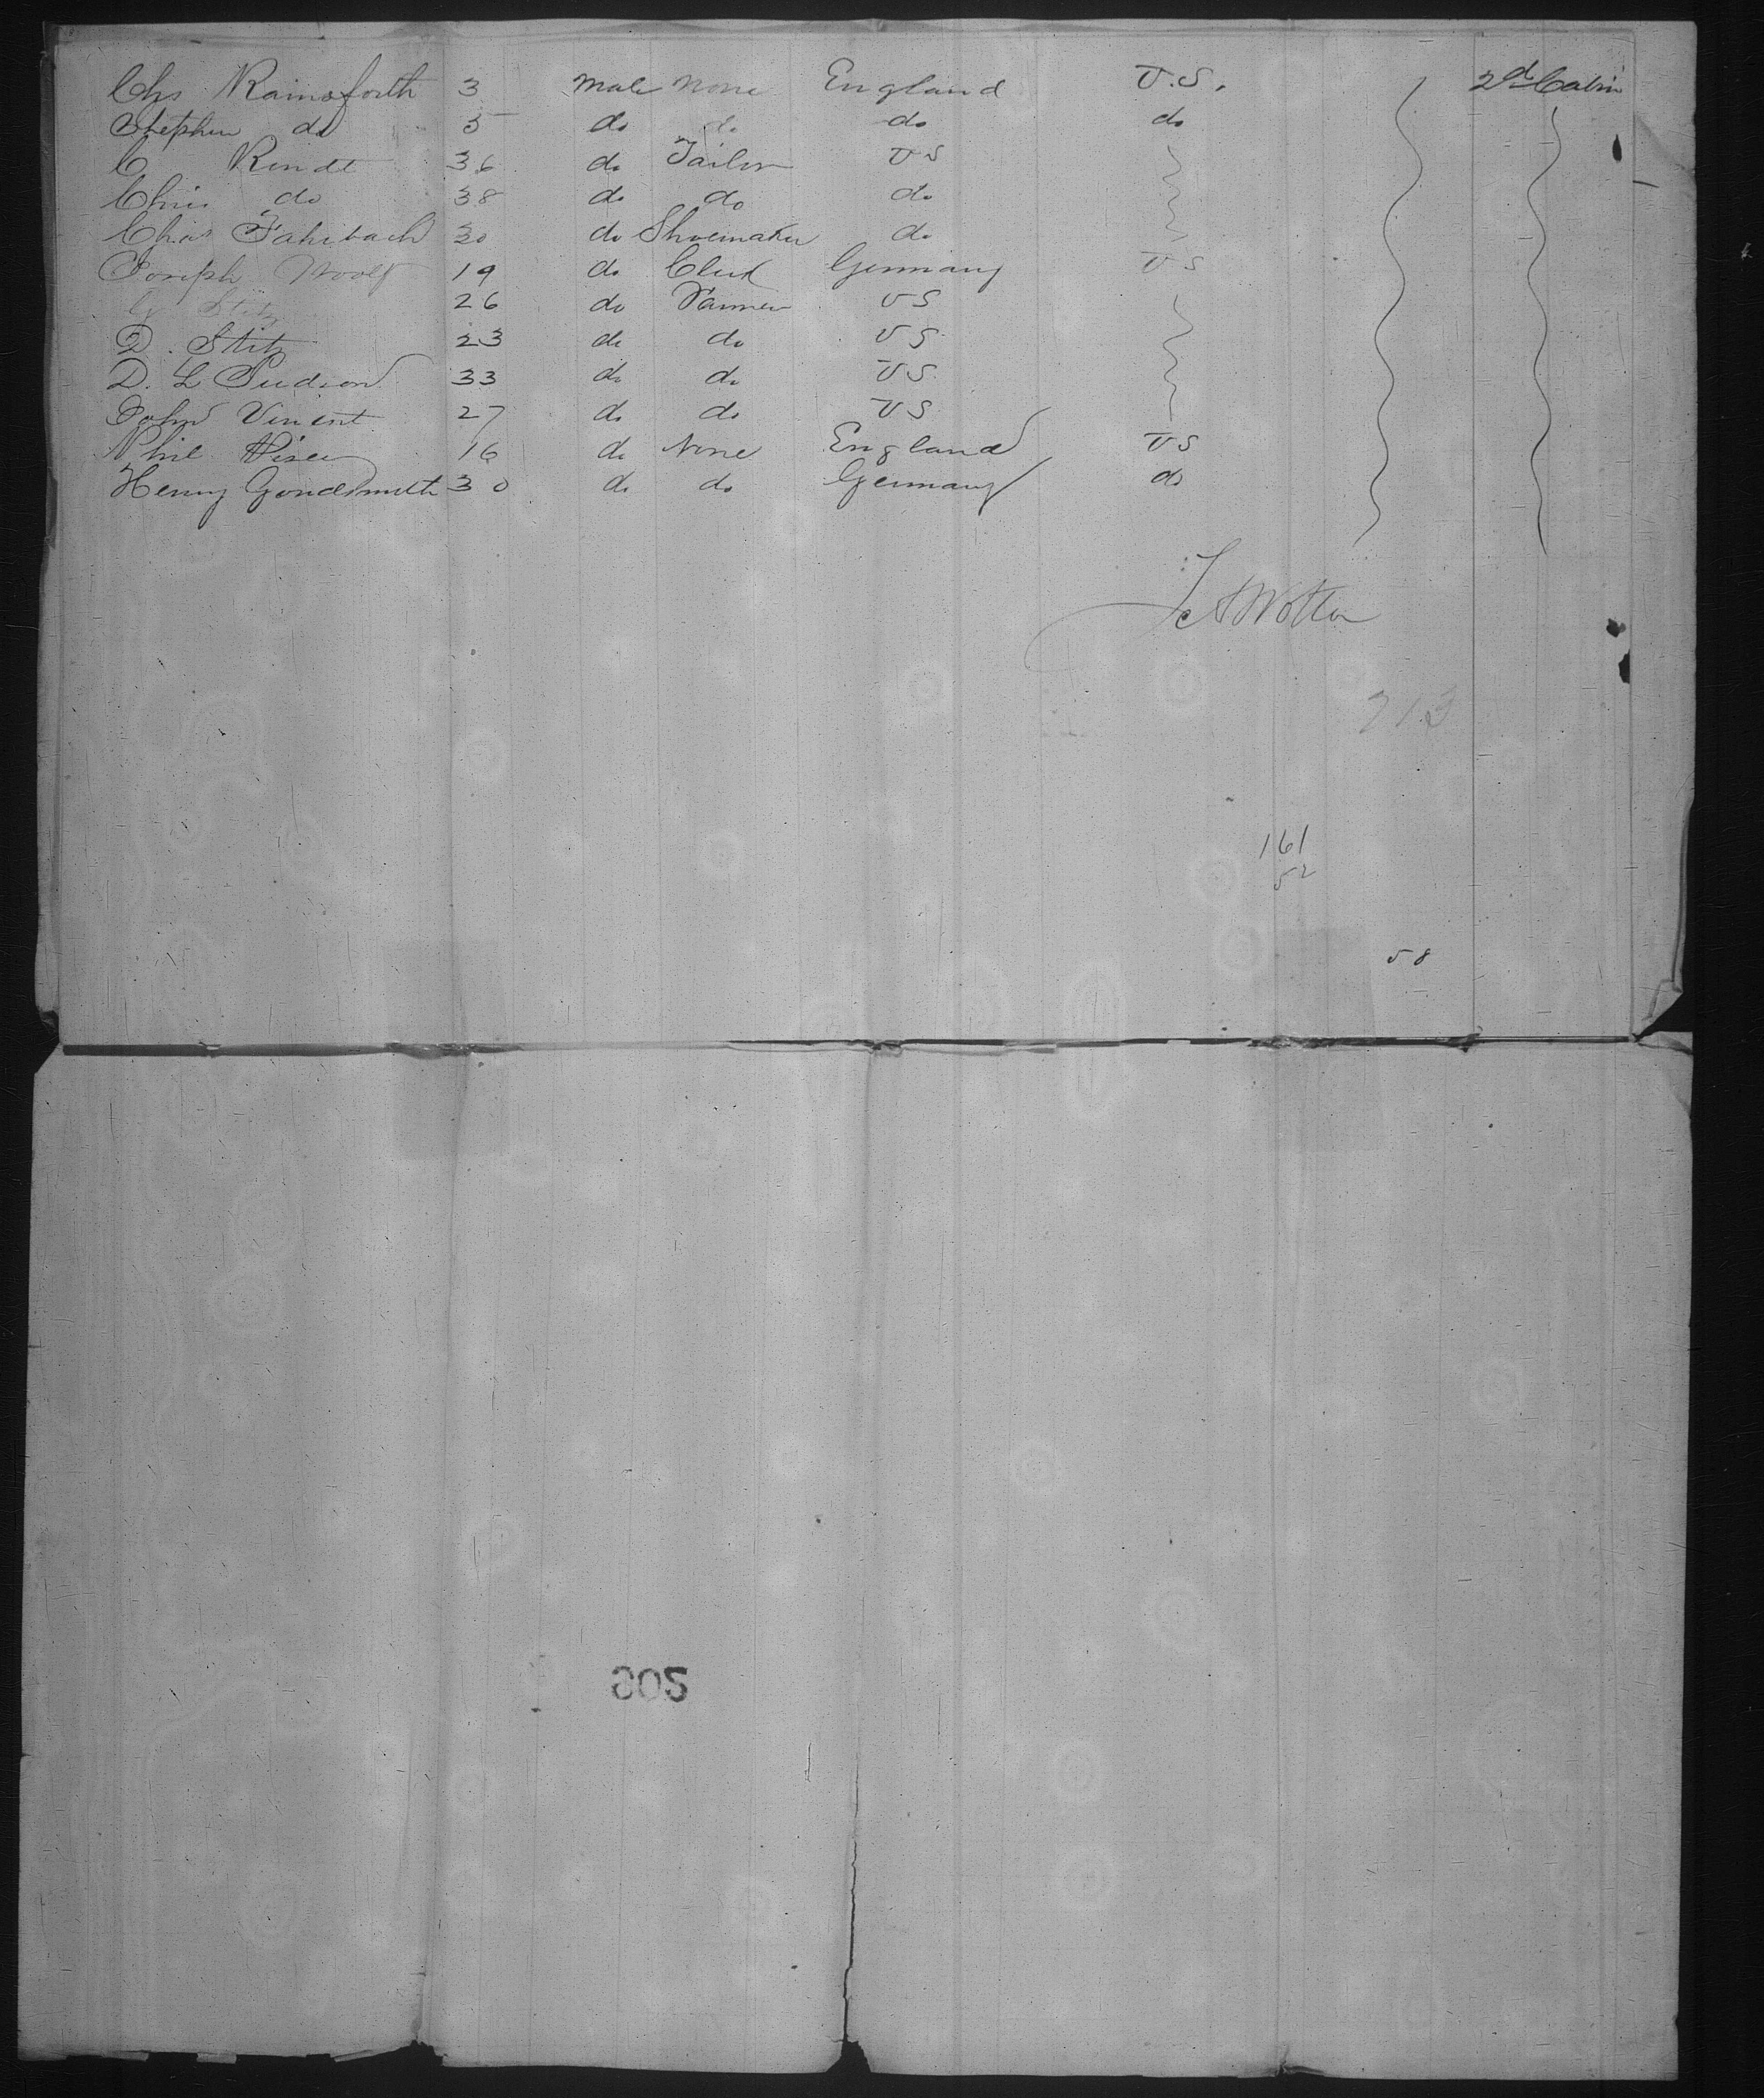 Chs Rainsforth 3 Male None England U.S. 2d Cabin
Stephen do 5 do do do do
C Rindt 36 do Tailor US
Chris do 38 do do do
Chas Fahrbach 30 do Shoemaker do
Joseph Woolf 19 do Clerk Germany US
G Stitz 26 do Farmer US
D. Stitz 23 do do US
D. L Judson 33 do do US
John Vincent 27 do do US
Phil 16 do None England US
Henry Gondsmith 30 do do Germany do
Wotton
213
161
52
58
202